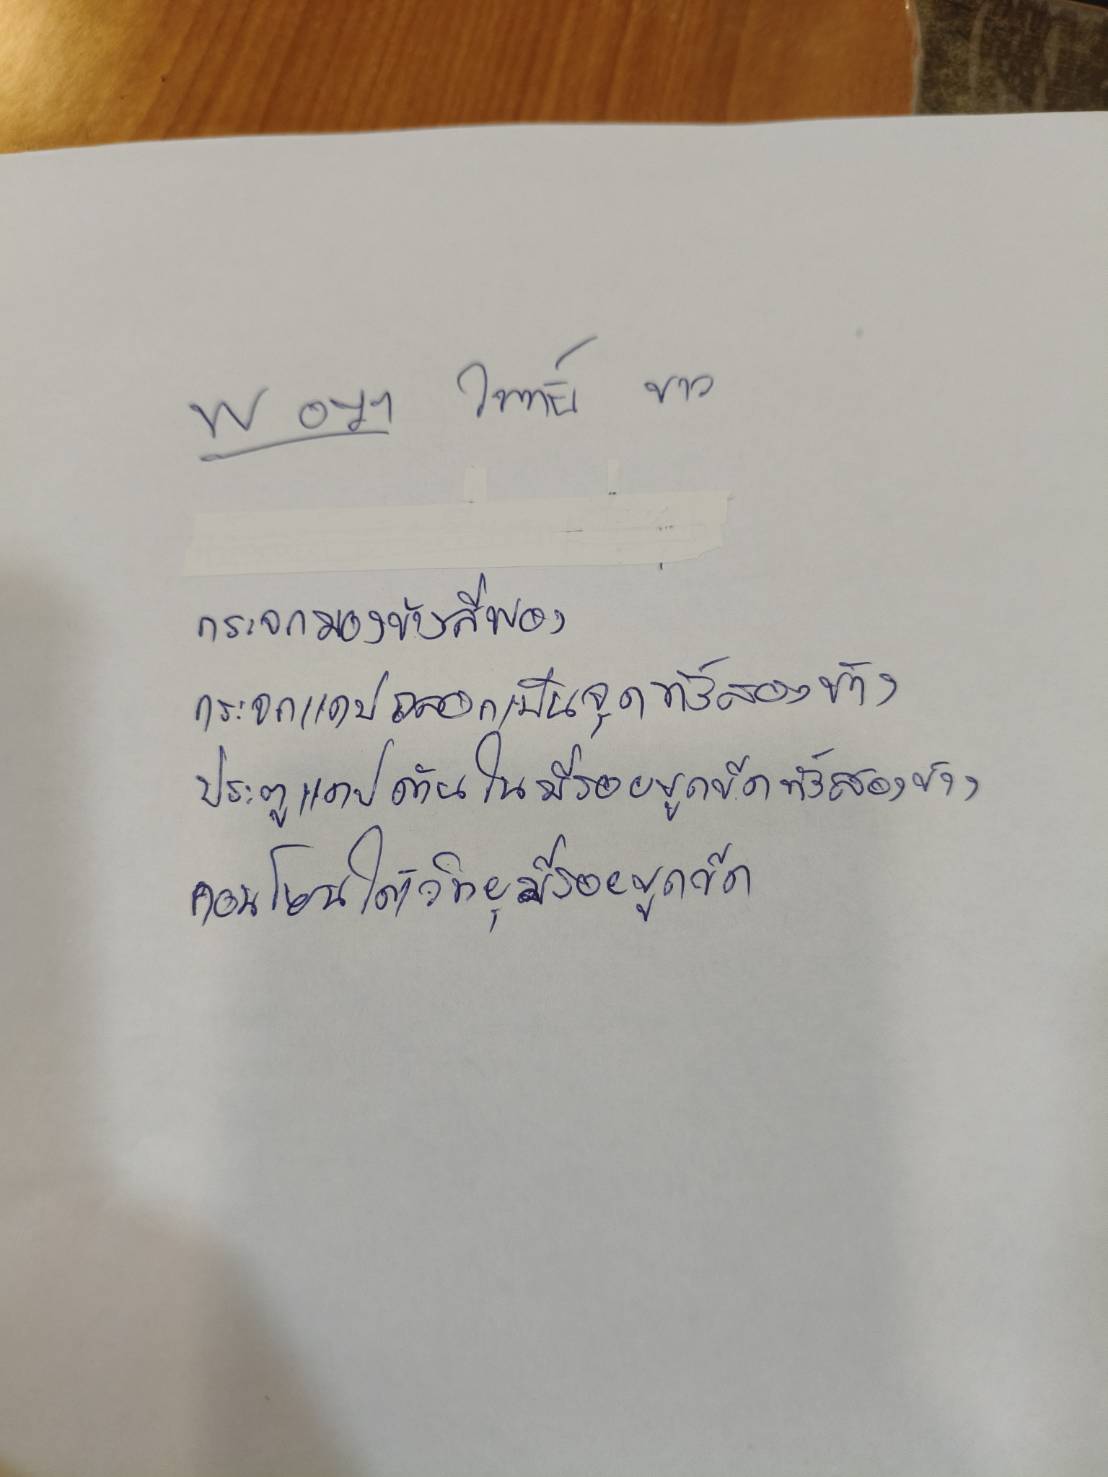 กระจกมองข้างสีพอง
กระจกแคปถลอกเป็นจุดทั้งสองข้าง
ประตูแคปด้านในมีรอยขูดขีดทั้งสองข้าง
คอนโซนใต้วิทยุมีรอยขูดขีด